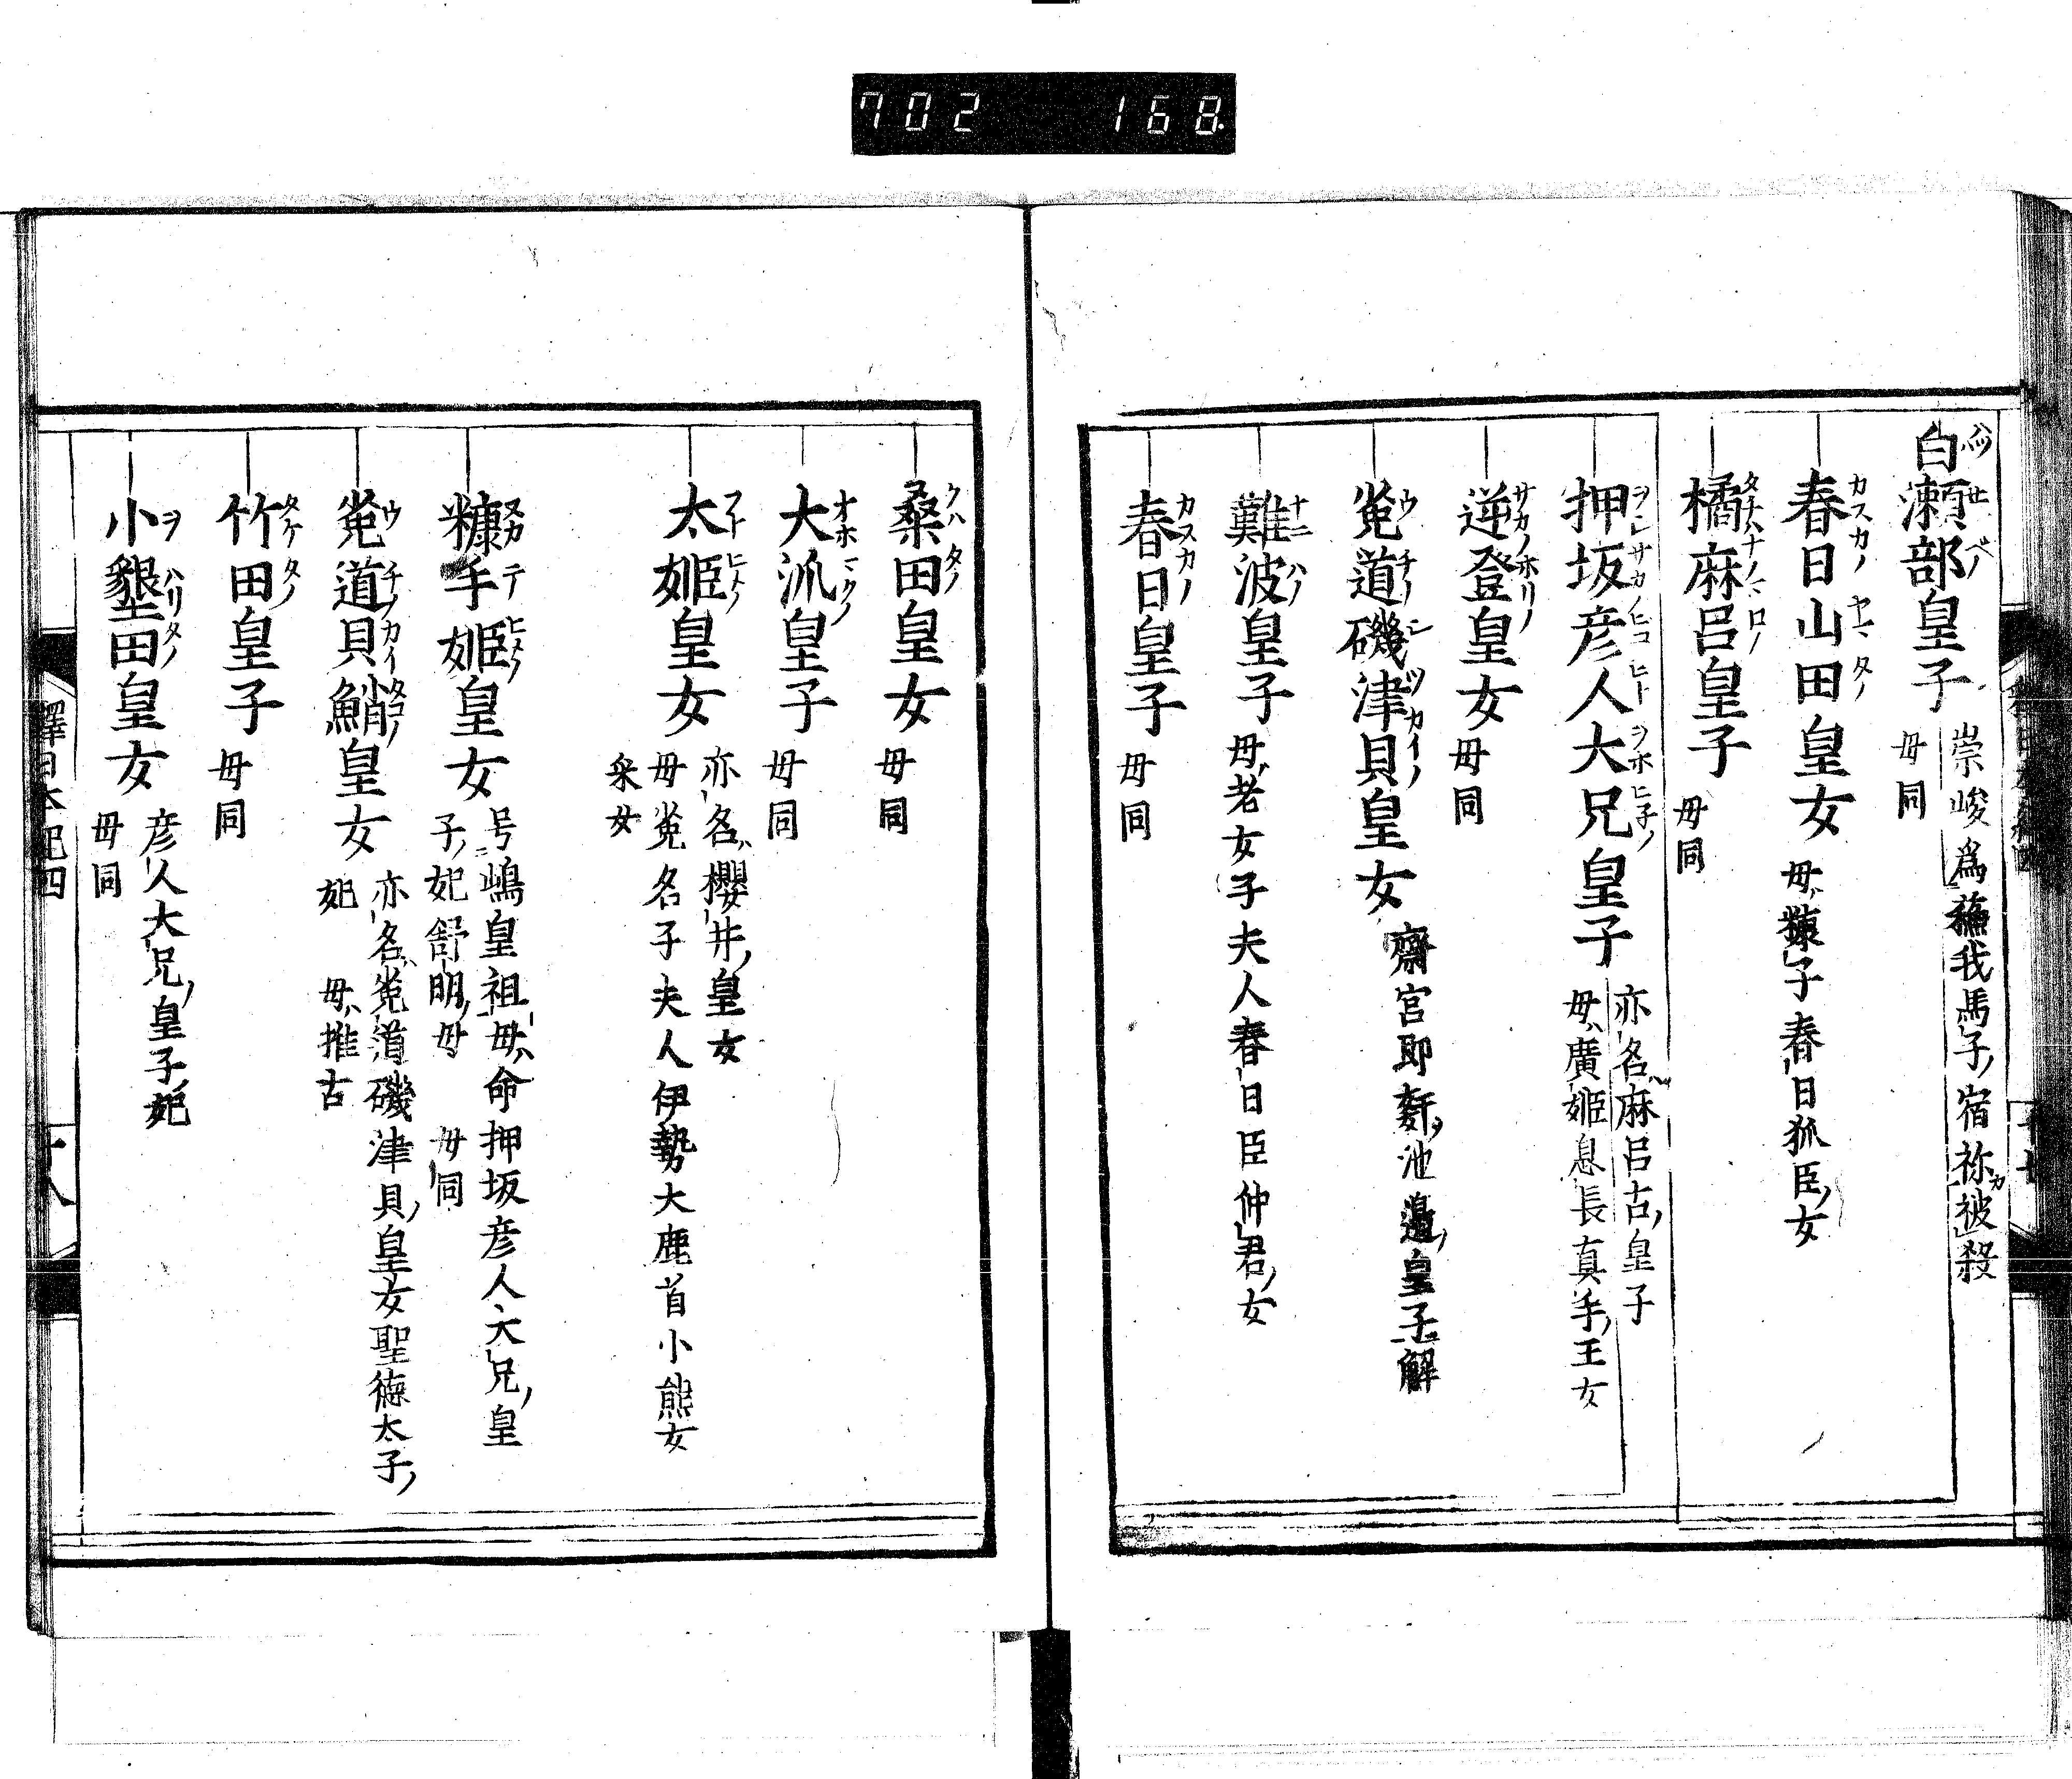 702 168.
白瀬部皇子 崇峻爲蘓我馬子宿祢被殺
母同
春日山田皇女 母糠子春日狐臣女
橘麻呂皇子 母同
押坂彦人大兄皇子 亦名麻呂古皇子
母廣姫息長真手王女
逆登皇女 母同
菟道磯津貝皇女 齋宮即奸池邊皇子解
難波皇子 母老女子夫人春日臣仲君女
春日皇子 母同
桑田皇女 母同
大派皇子 母同
太姫皇女 亦名櫻井皇女
母菟名子夫人伊勢大鹿首小熊女
采女
糠手姫皇女 号嶋皇祖母命押坂彦人大兄皇
子妃舒明母 母同
菟道貝鮹皇女 亦名菟道磯津貝皇女聖徳太子
妃 母推古
竹田皇子 母同
小墾田皇女 彦人大兄皇子妃
母同
釋日本紀四
十八